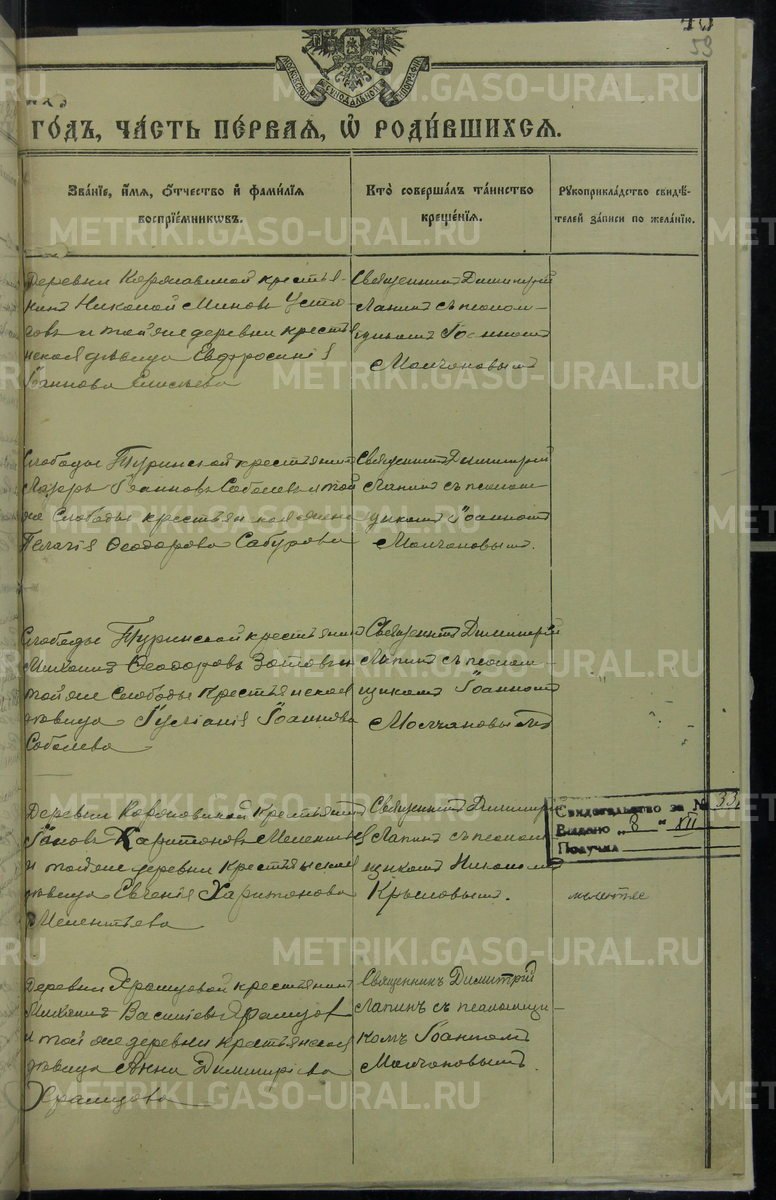 59
МОСКОВСКОЙ СѴНОДАЛЬНОЙ ТИПОГРАФІИ
ГОДЪ, ЧАСТЬ ПЕРВАЯ, Ѡ РОДИВШИХСЯ.
Званіе, имя, отчество и фамилія
воспріемниковъ.
Кто совершалъ таинство
крещенія.
Рукоприкладство свидѣ-
телей записи по желанію.
Деревни крестья-
нинъ Николай Миновъ
и той же деревни кресть
нская дѣвица Евфросинія
Іоаннова
Священникъ Димитрій
Лапинъ съ псалом-
щикомъ Іоанномъ
Молчановымъ
Слободы Туринской крестьянинъ
Лазарь Іоанновъ Соболевъ и той
же Слободы крестьянская жена
Пелагія Ѳеодорова Сабурова
Священникъ Димитрій
Лапинъ съ псалом
щикомъ Іоанномъ
Молчановымъ.
Слободы Туринской крестьянинъ
Михаилъ Ѳеодоровъ Зотовъ и
той же Слободы крестьянская
дѣвица Іуліанія Іоаннова
Соболева
Священникъ Димитрій
Лапинъ съ псалом-
щикомъ Іоанномъ
Молчановымъ
Деревни крестьянинъ
Іаковъ Харитоновъ Мелентьевъ
и той же деревни крестьянская
дѣвица Евгенія Харитонова
Мелентьева
Священникъ Димитрій
Лапинъ съ псалом
щикомъ Николаемъ
Крыловымъ.
Свидетельство за № 33
Выдано „8" XII
Получил
Деревни Храмцовой крестьянинъ
Михаилъ Василіевъ Храмцовъ
и той же деревни крестьянская
дѣвица Анна Димитріева
Храмцова
Священникъ Димитрій
Лапинъ съ псаломщи-
комъ Іоанномъ
Молчановымъ.
METRIKI.GASO-URAL.RU